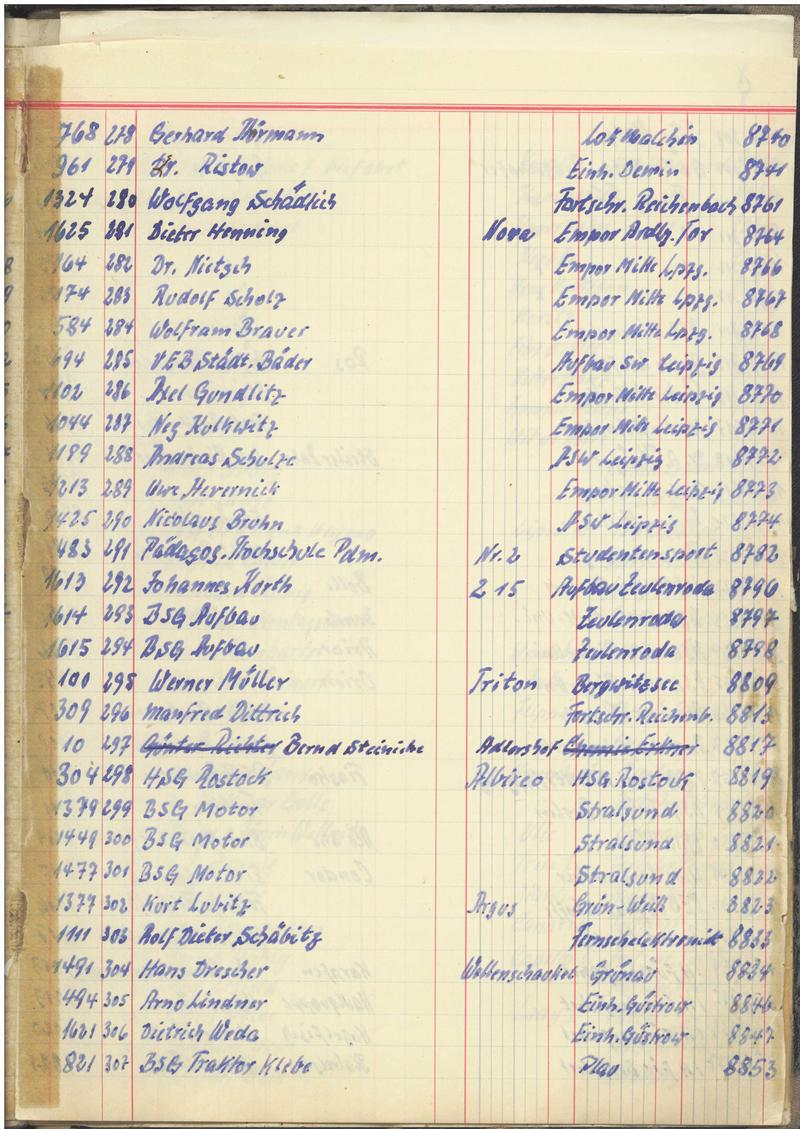 768 278 Gerhard Thörmann Lok Malchin 8740
961 279 Dr. Ristow Einh. Demin 8741
1324 280 Wolfgang Schädlich Fortschr. Reichenbach 8761
1625 281 Dieter Henning Nova Empor Brdbg. Tor 8764
164 282 Dr. Nietsch Empor Mitte Lpzg. 8766
174 283 Rudolf Scholz Empor Mitte Lpzg. 8767
584 284 Wolfram Brauer Empor Mitte Lpzg. 8768
694 285 VEB Städt. Bäder Aufbau SW Leipzig 8769
1102 286 Axel Gundlitz Empor Mitte Leipzig 8770
1044 287 Neg Kulkwitz Empor Mitte Leipzig 8771
1189 288 Andreas Schulze ASW Leipzig 8772
1213 289 Uwe Hevernick Empor Mitte Leipzig 8773
1425 290 Nicolaus Bruhn ASW Leipzig 8774
483 291 Pädagog. Hochschule Pdm. Nr. 2 Studentensport 8782
1613 292 Johannes Korth Z 15 Aufbau Zeulenroda 8796
1614 293 BSG Aufbau Zeulenroda 8797
1615 294 BSG Aufbau Zeulenroda 8798
100 295 Werner Müller Triton Bergwitzsee 8809
309 296 Manfred Dittrich Fortschr. Reichenb. 8813
10 297 Günter Richter Bernd Steinicke Adlershof Chemie Erkner 8817
304 298 HSG Rostock Albireo HSG Rostock 8819
1379 299 BSG Motor Stralsund 8820
1449 300 BSG Motor Stralsund 8821
1477 301 BSG Motor Stralsund 8822
1377 302 Kurt Lubitz Argus Grün-Weiß 8823
1111 303 Rolf Dieter Schäbitz Fernsehelektronik 8833
1491 304 Hans Drescher Wellenschaukel Grünau 8834
494 305 Arno Lindner Einh. Güstrow 8846
1621 306 Dietrich Weda Einh. Güstrow 8847
821 307 BSG Traktor Klebe Plau 8853